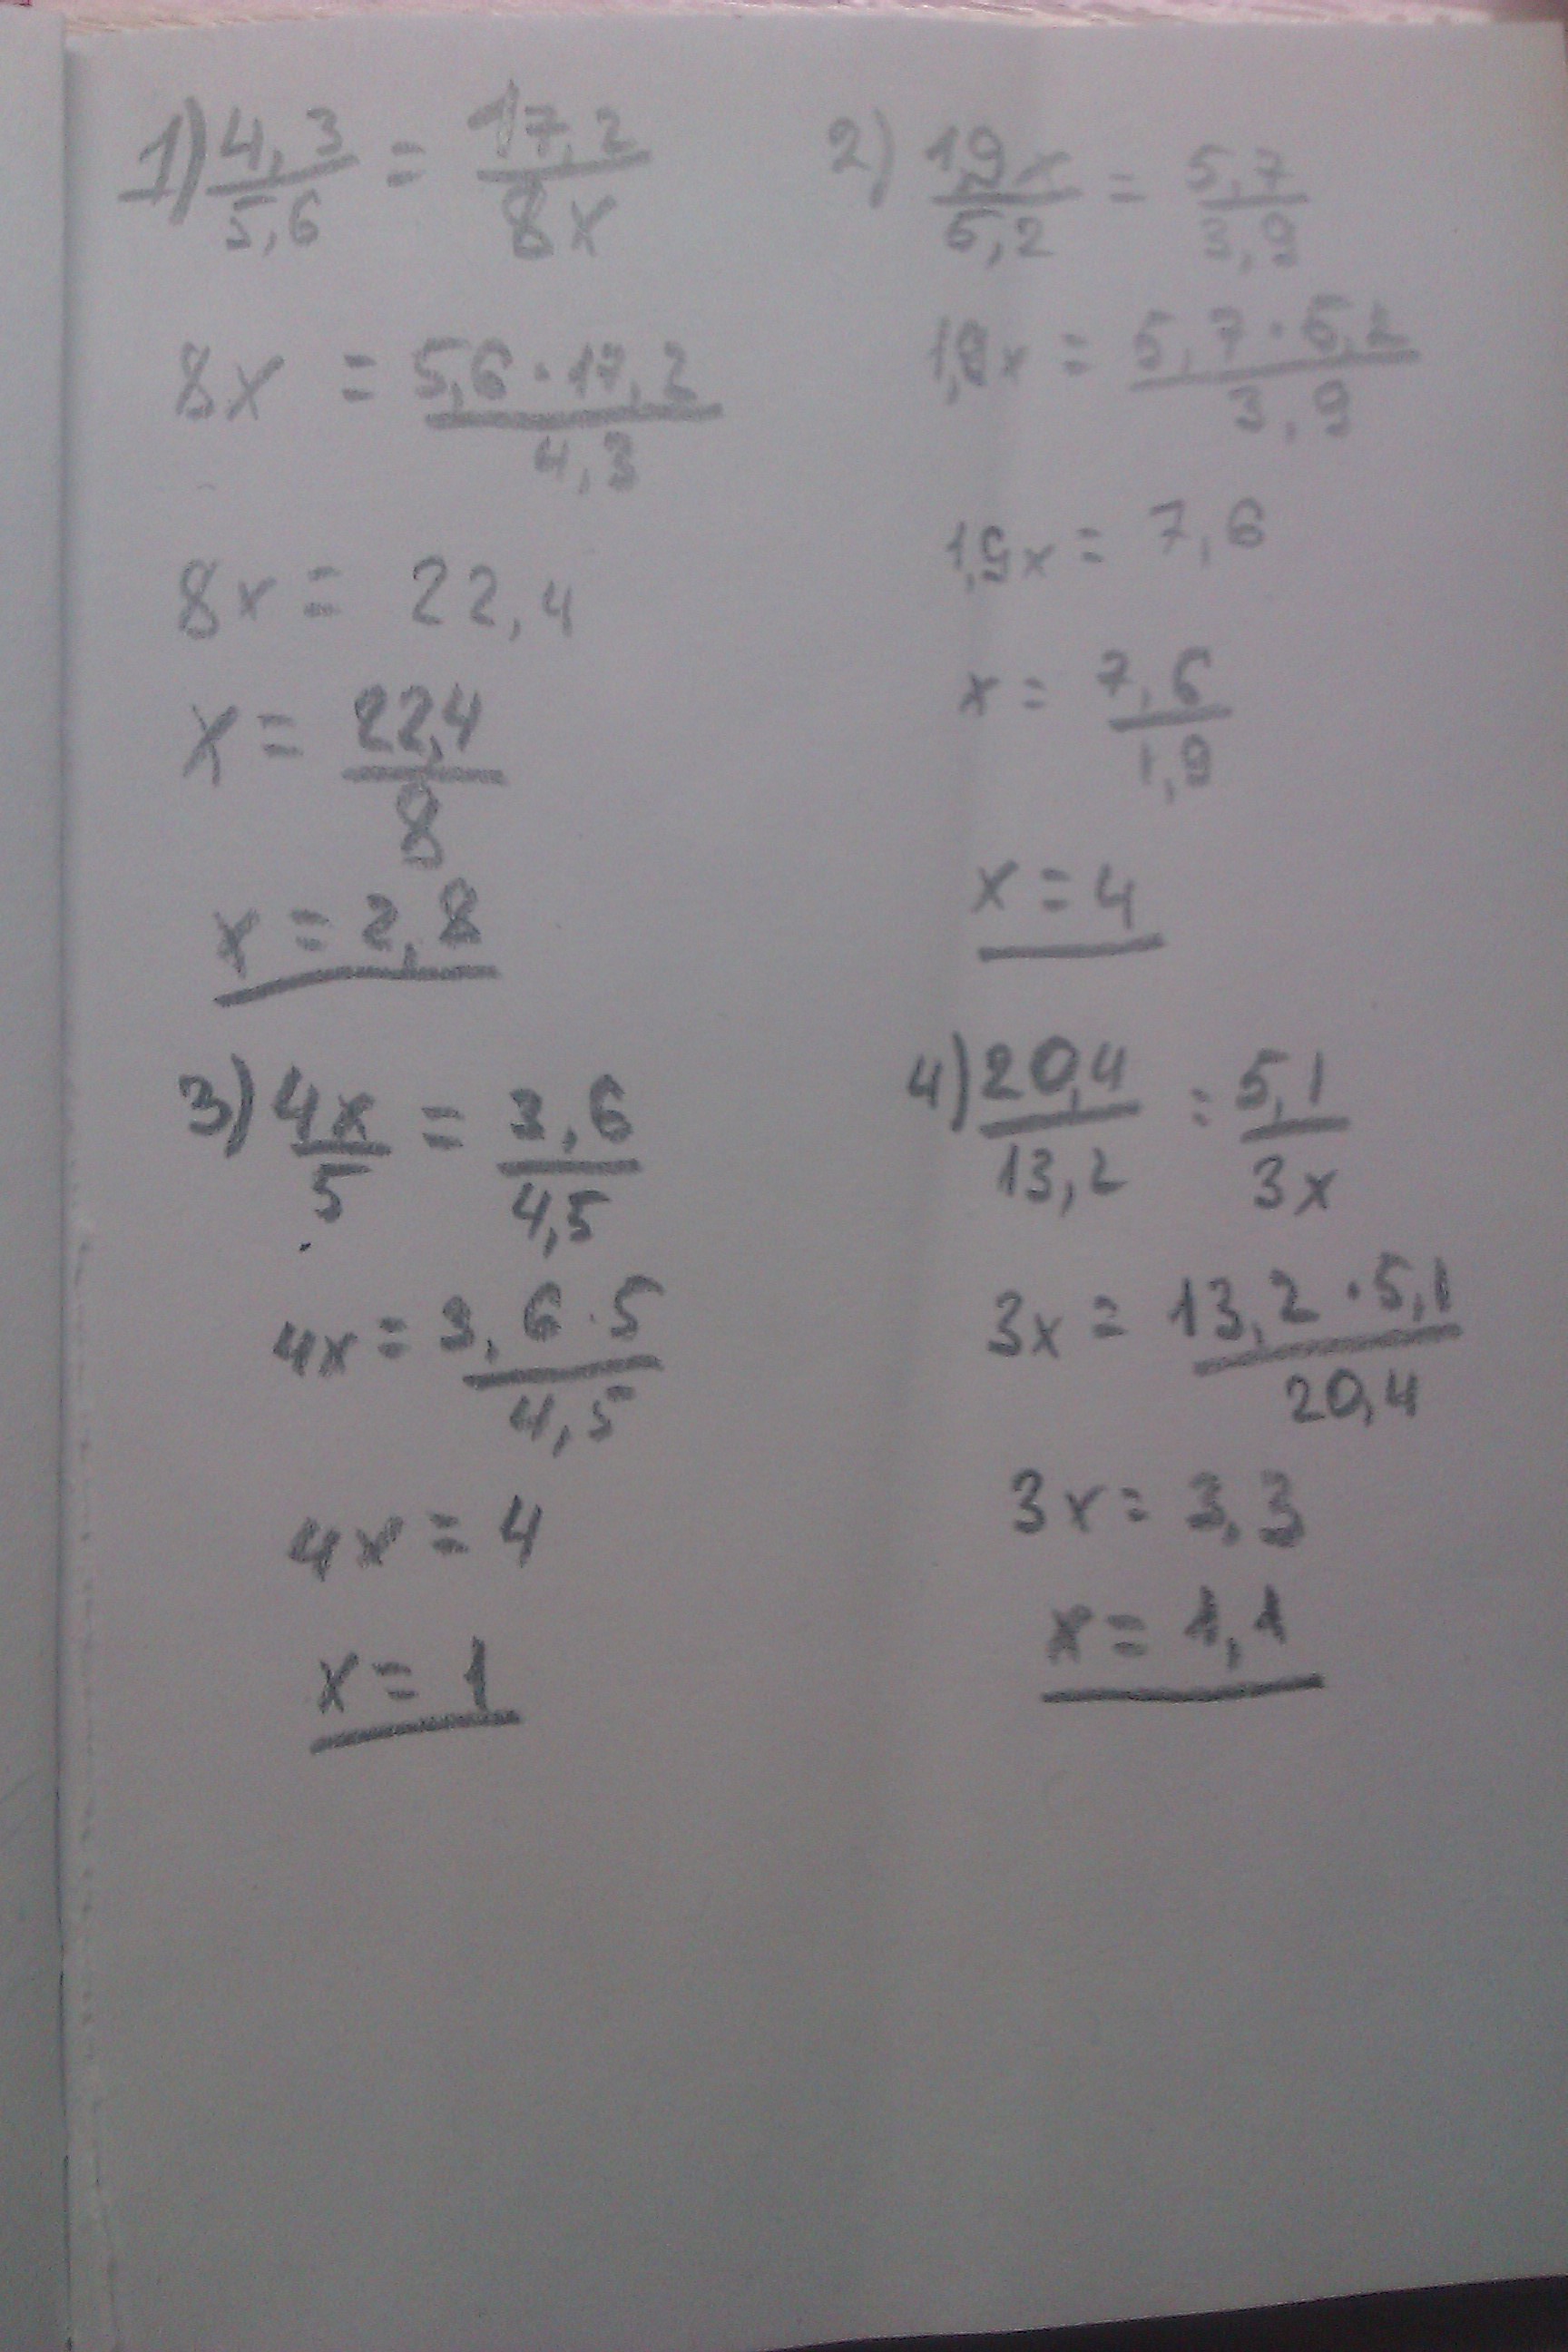 1) 4,3/5,6 = 17,2/8x
8x = 5,6·17,2/4,3
8x = 22,4
x = 22,4/8
x = 2,8
2) 1,9x/5,2 = 5,7/3,9
1,9x = 5,7·5,2/3,9
1,9x = 7,6
x = 7,6/1,9
x = 4
3) 4x/5 = 3,6/4,5
4x = 3,6·5/4,5
4x = 4
x = 1
4) 20,4/13,2 = 5,1/3x
3x = 13,2·5,1/20,4
3x = 3,3
x = 1,1